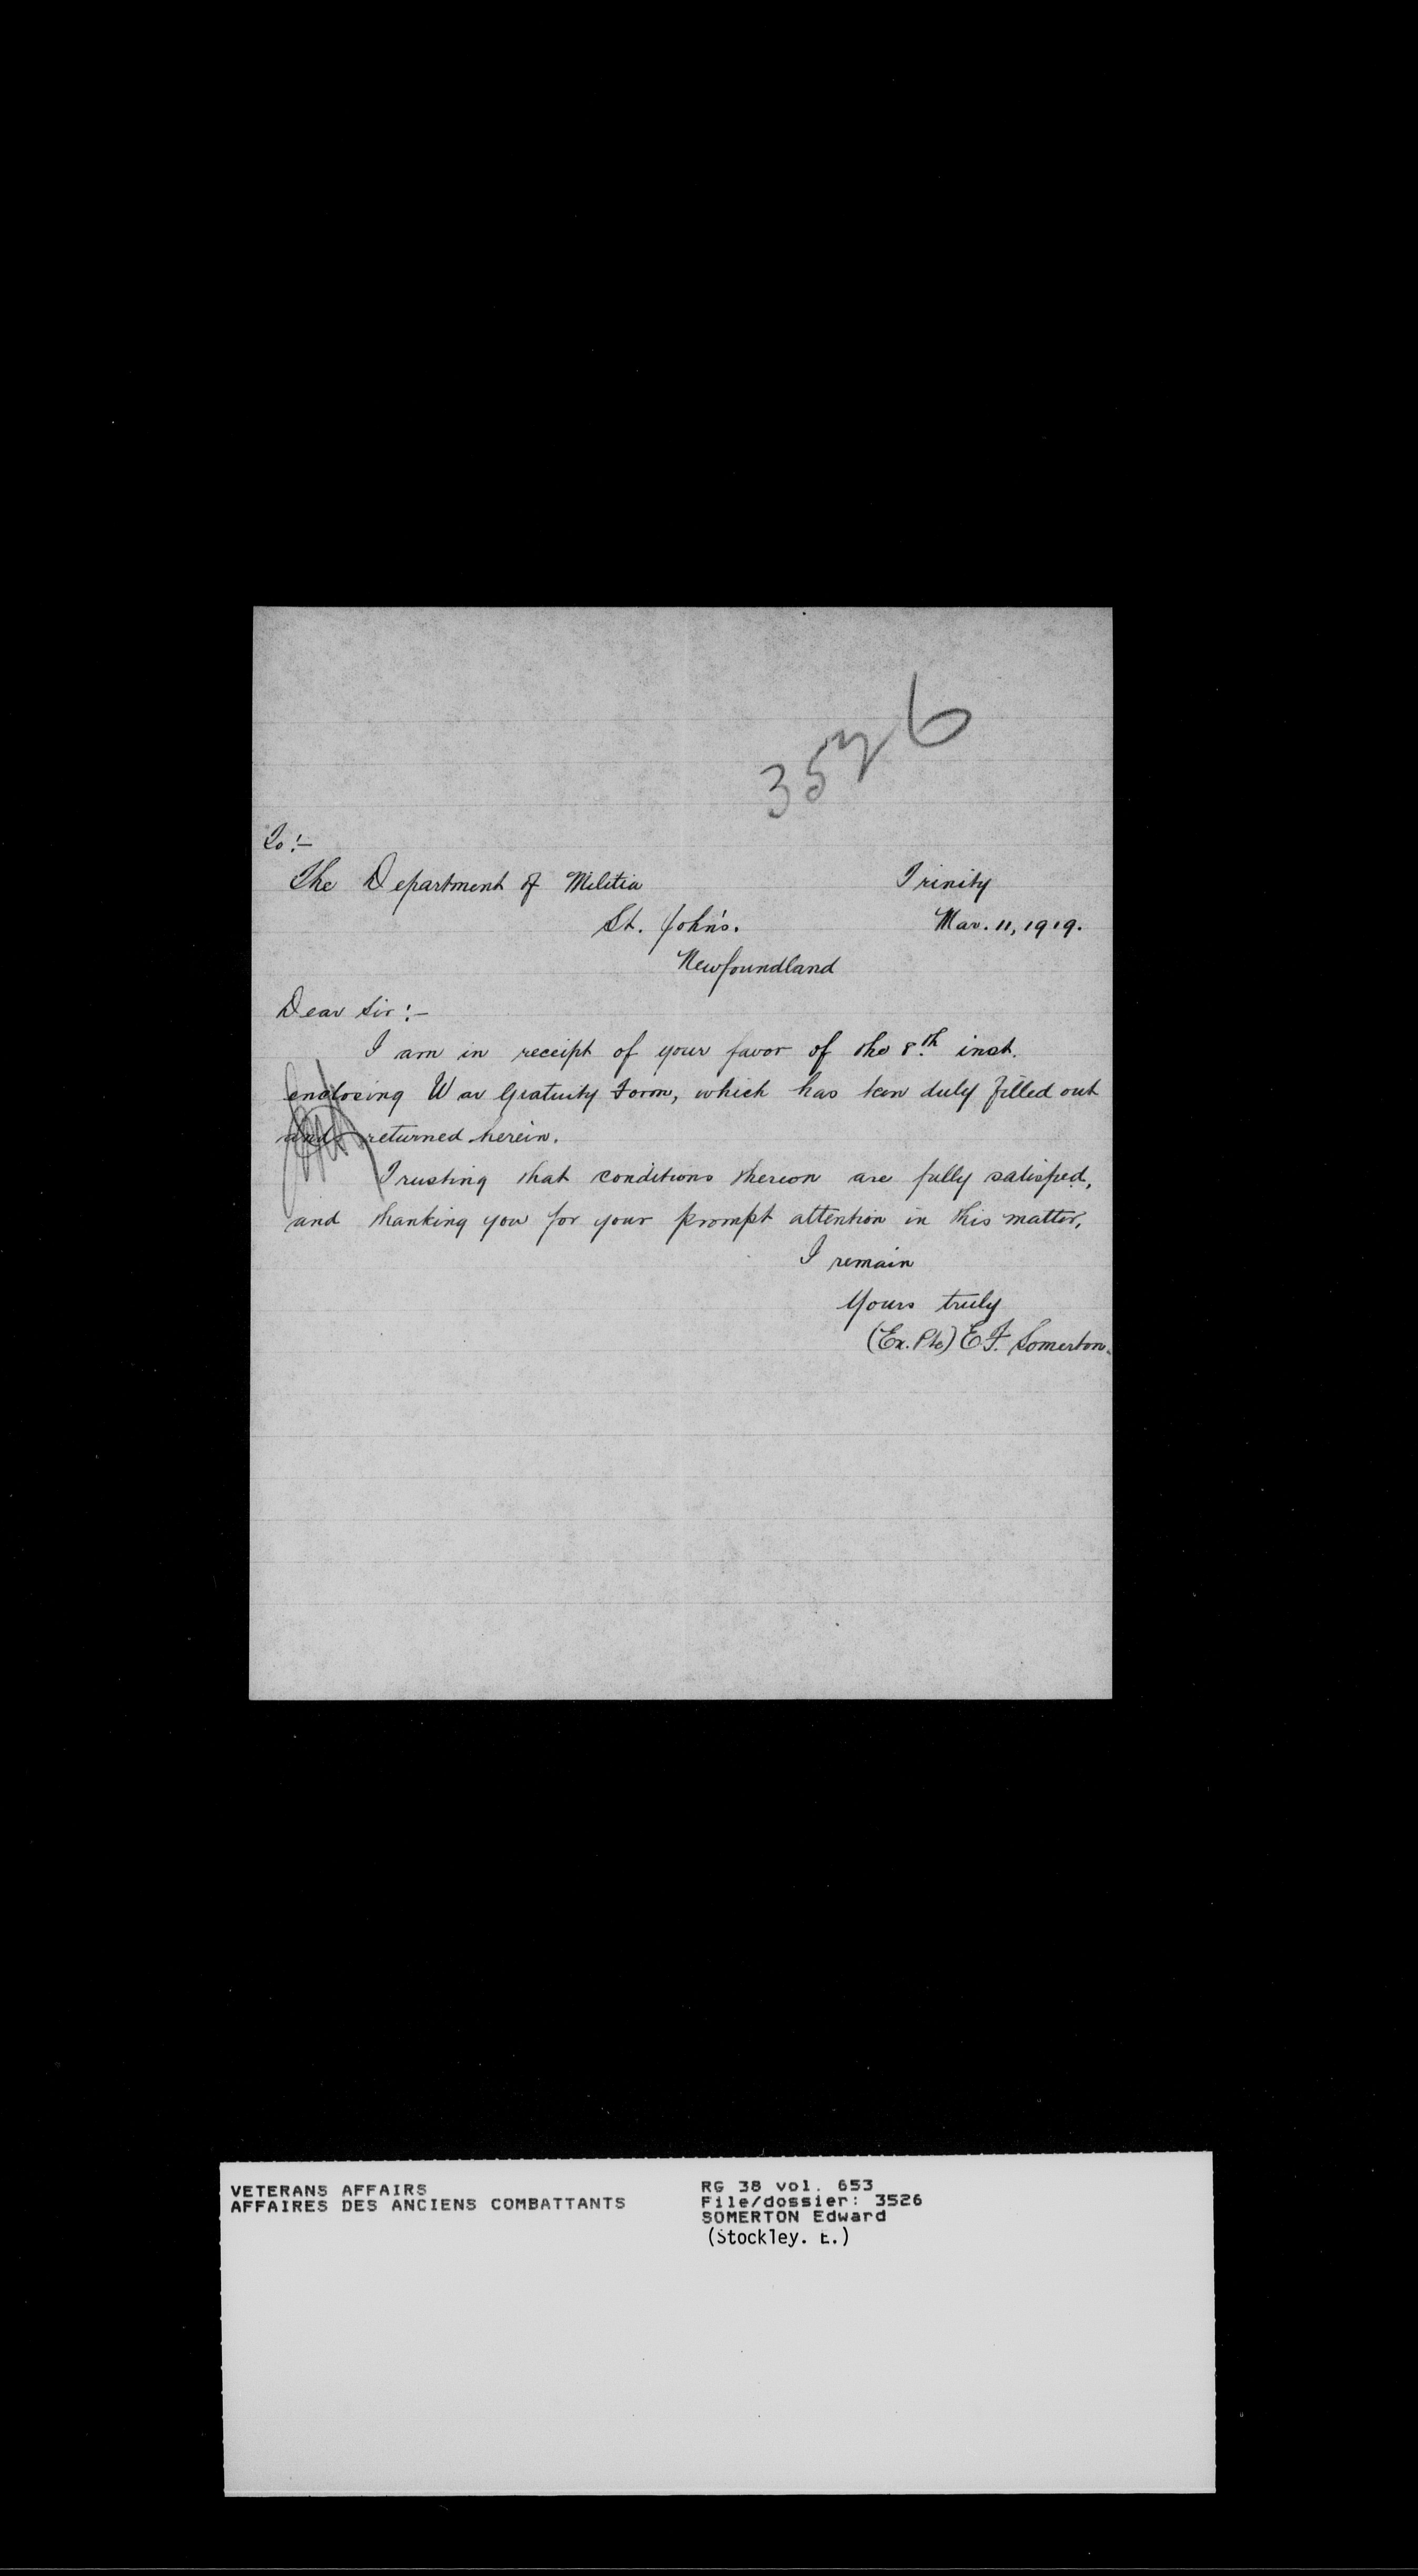 3526
To:-
The Department of Militia
Trinity
St. John's.
Mar. 11, 1919.
Newfoundland
Dear Sir:-
I am in receipt of your favor of the 8th inst.
enclosing War Gratuity Form, which has been duly filled out
and returned herein.
Trusting that conditions thereon are fully satisfied,
and thanking you for your prompt attention in this matter,
I remain
Yours truly
(Ex. Pte) E.F. Somerton.
VETERANS AFFAIRS
AFFAIRES DES ANCIENS COMBATTANTS
RG 38 vol. 653
File/dossier: 3526
SOMERTON Edward
(Stockley. E.)